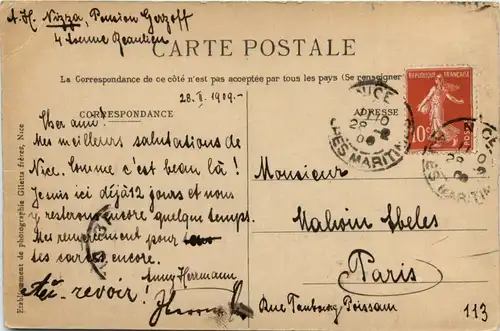 A. H. Nizza, Pension Gerzoff
4 Avenue Beaulieu
CARTE POSTALE
La Correspondance de ce côté n'est pas acceptée par tous les pays (Se renseigner
28. II. 1909.-
CORRESPONDANCE
ADRESSE
Cher ami!
Mes meilleurs salutations de
Nice. Comme c'est beau là!
Je suis ici déjà 12 jours et nous
y restrons encore quelque temps.
Mes remerciment pour
les cartes encore.
Anny Herrmann
Au revoir!
Monsieur
Mahoim Ebeles
Paris
Rue Faubourg Poissam
113
REPUBLIQUE FRANÇAISE
10
POSTES
NICE
ALPES MARITIMES
Etablissement de photographie Giletta frères, Nice